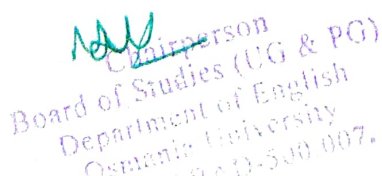 Chairperson
Board of Studies (UG & PG)
Department of English
Osmania University
D-500 007.